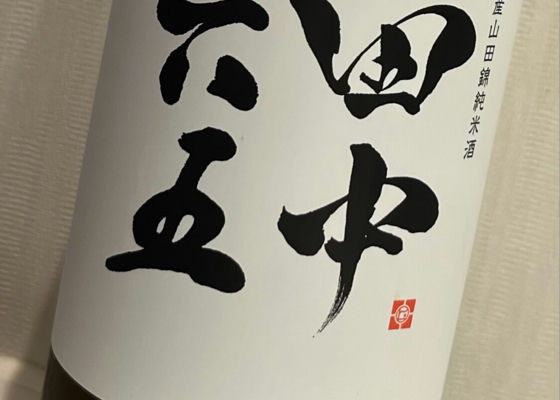 産山田錦純米酒
田中
六五